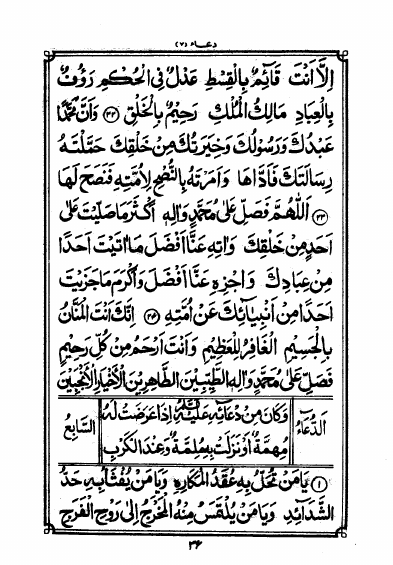 دعاء (٧)
اِلَّا اَنْتَ قَائِمٌ بِالْقِسْطِ عَدْلٌ فِي الْحُكْمِ رَؤُفٌ
بِالْعِبَادِ مَالِكُ الْمُلْكِ رَحِيْمٌ بِالْخَلْقِ ﴿٢٢﴾ وَاَنَّ مُحَمَّدًا
عَبْدُكَ وَرَسُوْلُكَ وَخِيَرَتُكَ مِنْ خَلْقِكَ حَمَّلْتَهُ
رِسَالَتَكَ فَاَدَّاهَا وَاَمَرْتَهُ بِالنُّصْحِ لِاُمَّتِهِ فَنَصَحَ لَهَا
﴿٢٣﴾ اَللّٰهُمَّ فَصَلِّ عَلٰى مُحَمَّدٍ وَاٰلِهِ اَكْثَرَ مَا صَلَّيْتَ عَلٰى
اَحَدٍ مِنْ خَلْقِكَ وَاٰتِهِ عَنَّا اَفْضَلَ مَا اٰتَيْتَ اَحَدًا
مِنْ عِبَادِكَ وَاجْزِهِ عَنَّا اَفْضَلَ وَاَكْرَمَ مَا جَزَيْتَ
اَحَدًا مِنْ اَنْبِيَائِكَ عَنْ اُمَّتِهِ ﴿٢٤﴾ اِنَّكَ اَنْتَ الْمَنَّانُ
بِالْجَسِيْمِ الْغَافِرُ لِلْعَظِيْمِ وَاَنْتَ اَرْحَمُ مِنْ كُلِّ رَحِيْمٍ
فَصَلِّ عَلٰى مُحَمَّدٍ وَاٰلِهِ الطَّيِّبِيْنَ الطَّاهِرِيْنَ الْاَخْيَارِ الْاَنْجَبِيْنَ
اَلدُّعَاءُ
وَكَانَ مِنْ دُعَائِهِ عَلَيْهِ السَّلَامُ اِذَا عَرَضَتْ لَهُ
مُهِمَّةٌ اَوْ نَزَلَتْ بِهِ مُلِمَّةٌ وَعِنْدَ الْكَرْبِ
السَّابِعُ
﴿١﴾ يَا مَنْ تُحَلُّ بِهِ عُقَدُ الْمَكَارِهِ وَيَا مَنْ يُفْثَأُ بِهِ حَدُّ
الشَّدَائِدِ وَيَا مَنْ يُلْتَمَسُ مِنْهُ الْمَخْرَجُ اِلٰى رَوْحِ الْفَرَجِ
٣٦